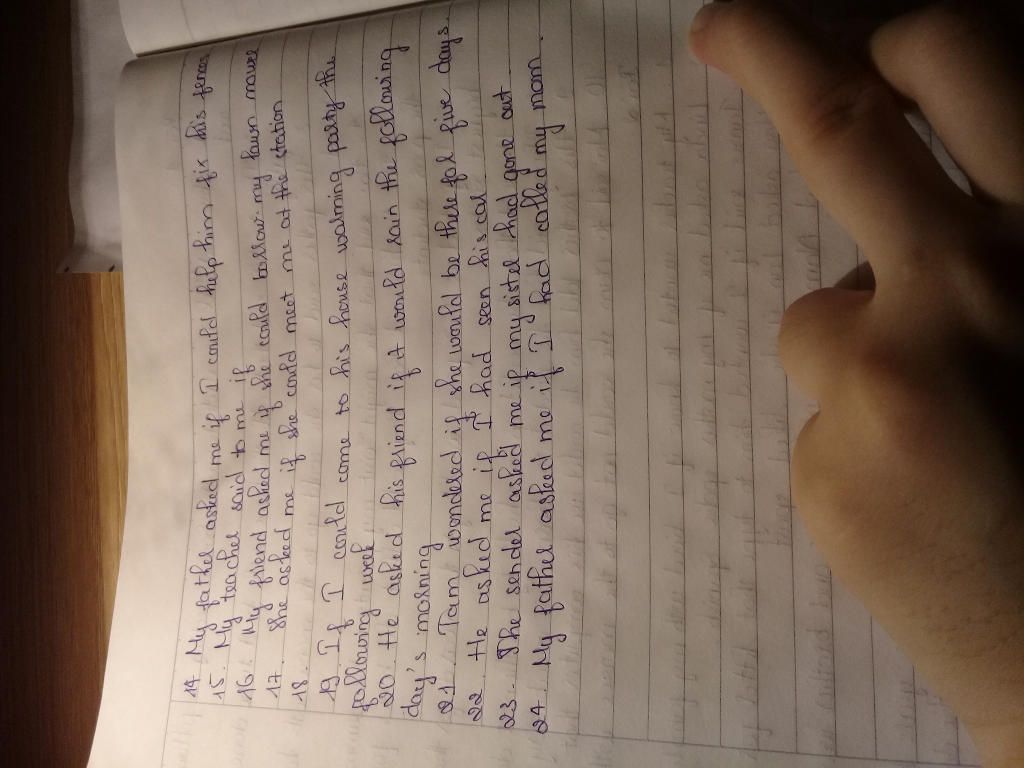 14. My father asked me if I could help him fix his fence
15. My teacher said to me if
16. My friend asked me if she could borrow my lawn mower
17. She asked me if she could meet me at the station
18.
19. If I could come to his house walming party the
following week
20. He asked his friend if it would rain the following
day's morning
21. Tam wondered if she would be there for five days.
22. He asked me if I had seen his cat
23. The sender asked me if my sister had gone out
24. My father asked me if I had called my mom.